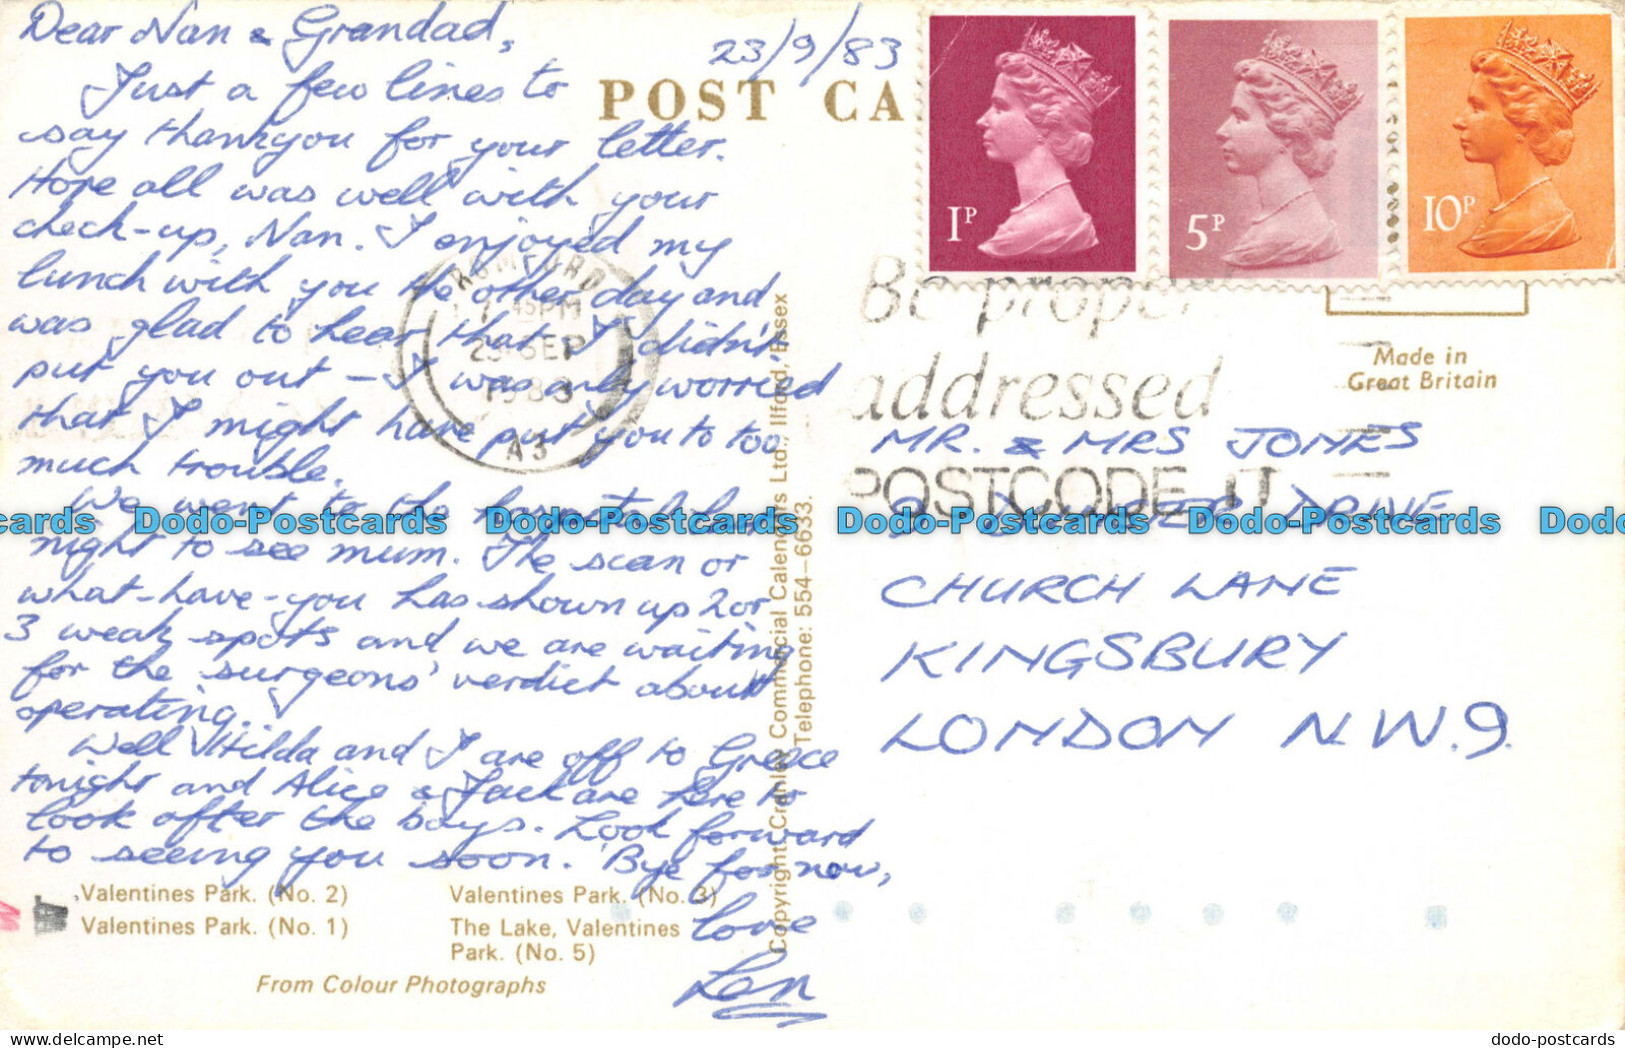 Dear Nan & Grandad,
23/9/83
Just a few lines to
say thankyou for your letter.
Hope all was well with your
check-up, Nan. I enjoyed my
lunch with you the other day and
was glad to hear that I didn't
put you out – I was only worried
that I might have put you to too
much trouble.
We went to the hospital last
night to see mum. The scan or
what-have-you has shown up 2 or
3 weak spots and we are waiting
for the surgeons' verdict about
operating.
Well Hilda and I are off to Greece
tonight and Alice & Jack are here to
look after the boys. Look forward
to seeing you soon. 'Bye for now,
love
Len
POST CA
1P
5P
10P
ROMFORD
45PM
SEP
1983
A3
Be proper
addressed
POSTCODE IT
Made in
Great Britain
MR. & MRS JONES
DRIVE
CHURCH LANE
KINGSBURY
LONDON N.W.9.
Copyright Cranley Commercial Calendars Ltd., Ilford, Essex
Telephone: 554–6633.
Valentines Park. (No. 2)
Valentines Park. (No. 3)
Valentines Park. (No. 1)
The Lake, Valentines
Park. (No. 5)
From Colour Photographs
cards Dodo-Postcards Dodo-Postcards Dodo-Postcards Dodo-Postcards Dodo
dodo-postcards